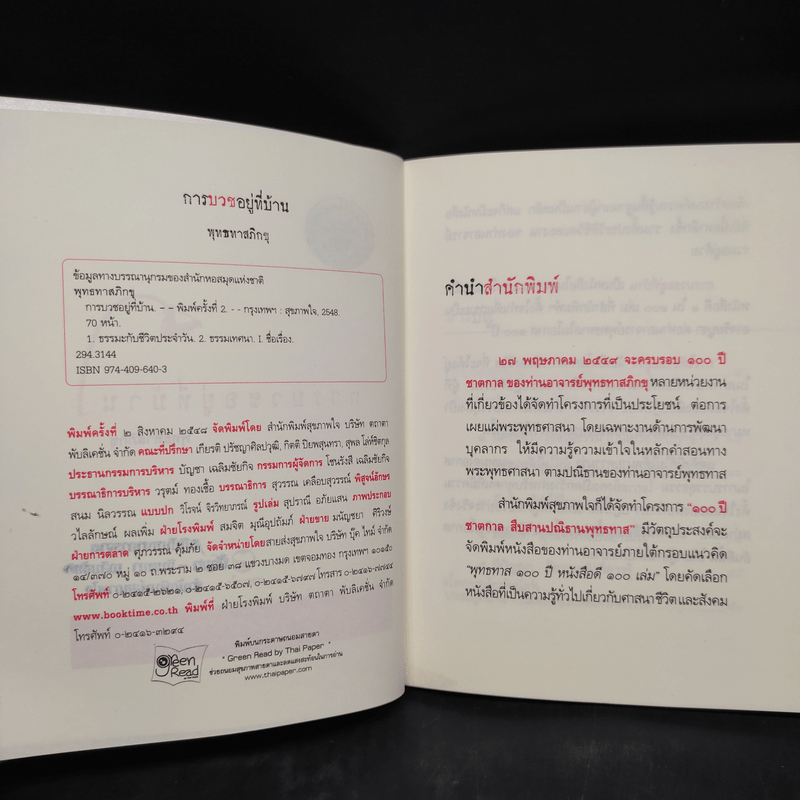 การบวชอยู่ที่บ้าน
พุทธทาสภิกขุ
ข้อมูลทางบรรณานุกรมของสำนักหอสมุดแห่งชาติ
พุทธทาสภิกขุ
การบวชอยู่ที่บ้าน. - - พิมพ์ครั้งที่ 2. - - กรุงเทพฯ : สุขภาพใจ, 2548.
70 หน้า.
1. ธรรมะกับชีวิตประจำวัน. 2. ธรรมเทศนา. I. ชื่อเรื่อง.
294.3144
ISBN 974-409-640-3
พิมพ์ครั้งที่ ๒ สิงหาคม ๒๕๔๘ จัดพิมพ์โดย สำนักพิมพ์สุขภาพใจ บริษัท ตถาตา
พับลิเคชั่น จำกัด คณะที่ปรึกษา เกียรติ ปรัชญาศิลปวุฒิ, กิตติ ปิยพสุนทรา, สุพล โล่ห์ชิตกุล
ประธานกรรมการบริหาร บัญชา เฉลิมชัยกิจ กรรมการผู้จัดการ โชนรังสี เฉลิมชัยกิจ
บรรณาธิการบริหาร วรุตม์ ทองเชื้อ บรรณาธิการ สุวรรณ เคลือบสุวรรณ์ พิสูจน์อักษร
สนม นิลวรรณ แบบปก วิโรจน์ จิรวิทยาภรณ์ รูปเล่ม สุปราณี อภัยแสน ภาพประกอบ
วไลลักษณ์ ผลเพิ่ม ฝ่ายโรงพิมพ์ สมจิต มุณีอุปถัมภ์ ฝ่ายขาย มนัญชยา ศิริวงษ์
ฝ่ายการตลาด ศุภวรรณ คุ้มภัย จัดจำหน่ายโดยสายส่งสุขภาพใจ บริษัท บุ๊ค ไทม์ จำกัด
๑๔/๓๗๐ หมู่ ๑๐ ถ.พระราม ๒ ซอย ๓๘ แขวงบางมด เขตจอมทอง กรุงเทพฯ ๑๐๑๕๐
โทรศัพท์ ๐-๒๔๑๕-๒๖๒๑, ๐-๒๔๑๕-๖๕๐๗, ๐-๒๔๑๕-๖๗๙๗ โทรสาร ๐-๒๔๑๖-๗๗๔๔
www.booktime.co.th พิมพ์ที่ ฝ่ายโรงพิมพ์ บริษัท ตถาตา พับลิเคชั่น จำกัด
โทรศัพท์ ๐-๒๔๑๖-๓๒๙๔
green Read
พิมพ์บนกระดาษถนอมสายตา
" Green Read by Thai Paper "
ช่วยถนอมสุขภาพสายตาและลดแสงสะท้อนในการอ่าน
www.thaipaper.com
คำนำสำนักพิมพ์
๒๗ พฤษภาคม ๒๕๔๙ จะครบรอบ ๑๐๐ ปี
ชาตกาล ของท่านอาจารย์พุทธทาสภิกขุ หลายหน่วยงาน
ที่เกี่ยวข้องได้จัดทำโครงการที่เป็นประโยชน์ ต่อการ
เผยแผ่พระพุทธศาสนา โดยเฉพาะงานด้านการพัฒนา
บุคลากร ให้มีความรู้ความเข้าใจในหลักคำสอนทาง
พระพุทธศาสนา ตามปณิธานของท่านอาจารย์พุทธทาส
สำนักพิมพ์สุขภาพใจก็ได้จัดทำโครงการ "๑๐๐ ปี
ชาตกาล สืบสานปณิธานพุทธทาส" มีวัตถุประสงค์จะ
จัดพิมพ์หนังสือของท่านอาจารย์ภายใต้กรอบแนวคิด
"พุทธทาส ๑๐๐ ปี หนังสือดี ๑๐๐ เล่ม" โดยคัดเลือก
หนังสือที่เป็นความรู้ทั่วไปเกี่ยวกับศาสนา ชีวิต และสังคม